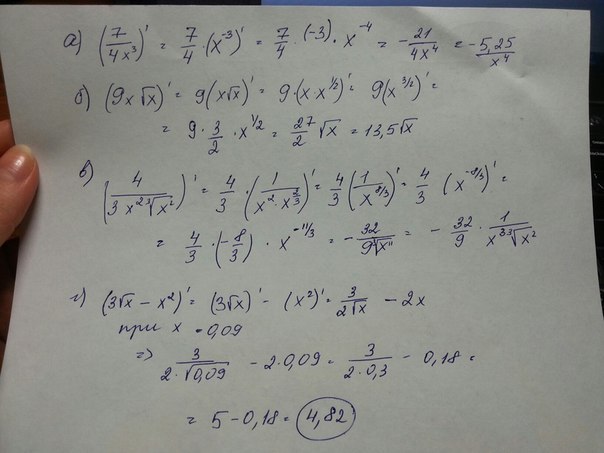 а) (7/(4x³))' = 7/4 · (x⁻³)' = 7/4 · (-3) · x⁻⁴ = - 21/(4x⁴) = - 5,25/x⁴
б) (9x√x)' = 9(x√x)' = 9·(x·x^(1/2))' = 9(x^(3/2))' =
= 9·3/2·x^(1/2) = 27/2 √x = 13,5√x
в) (4/(3x²∛(x²)))' = 4/3 · (1/(x²·x^(2/3)))' = 4/3 (1/x^(8/3))' = 4/3 (x^(-8/3))' =
= 4/3 · (-8/3) · x^(-11/3) = - 32/(9∛(x¹¹)) = - 32/9 · 1/(x³∛(x²))
г) (3√x - x²)' = (3√x)' - (x²)' = 3/(2√x) - 2x
при x = 0,09
=> 3/(2·√0,09) - 2·0,09 = 3/(2·0,3) - 0,18 =
= 5 - 0,18 = 4,82